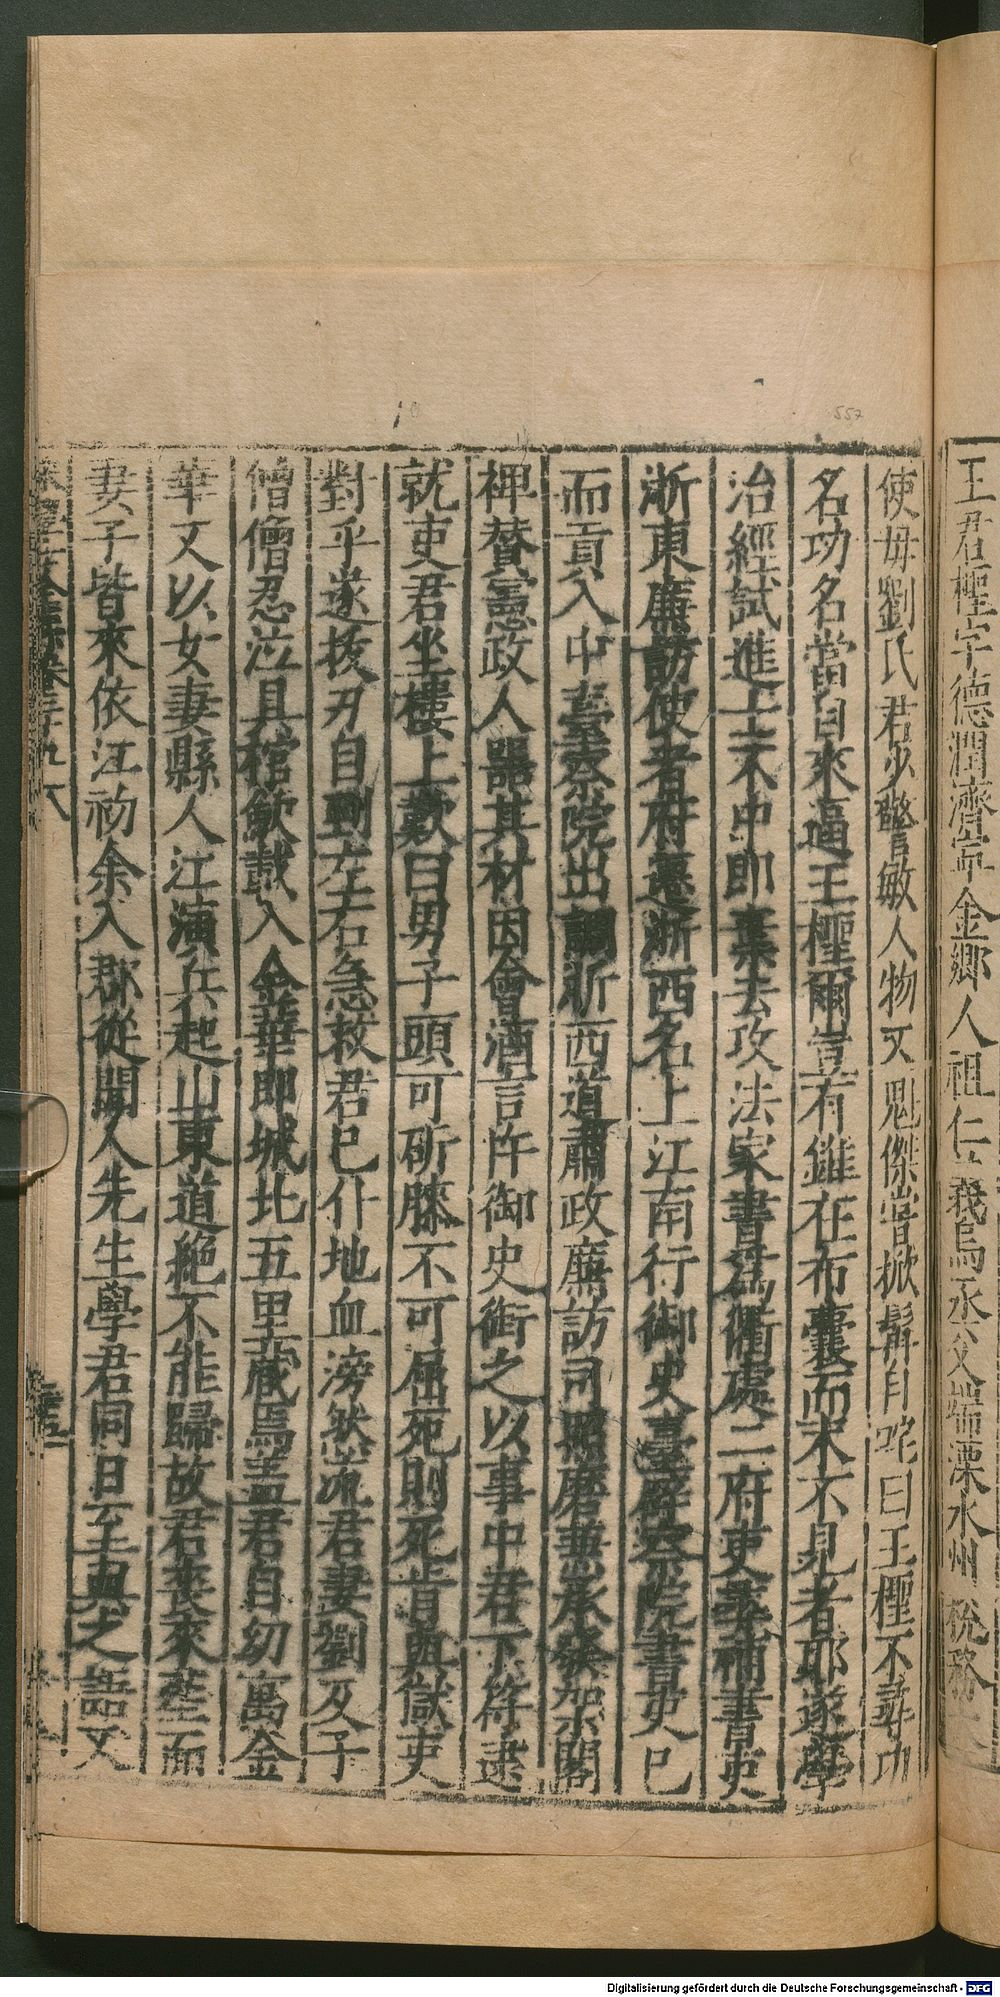 王君檉字德潤濟寧金鄉人祖仁義烏丞父端溧水州稅務
使母劉氏君少警敏人物又魁傑嘗掀髯自咤曰王檉不尋功
名功名當自來逼王檉爾豈有錐在布囊而末不見者耶遂學
治經試進士不中即棄去攻法家書爲衢處二府吏尋補書吏
浙東廉訪使者府遷浙西名上江南行御史臺辟察院書吏已
而貢入中臺察院出調浙西道肅政廉訪司照磨兼承發架閣
裨贊憲政人器其材因會酒言忤御史銜之以事中君下符逮
就吏君坐樓上歎曰男子頭可斫膝不可屈死則死肯與獄吏
對乎遂拔刃自剄左右急救君已仆地血滂然流君妻劉及子
僧僧忍泣具棺斂載入金華即城北五里藏焉盖君自幼寓金
華又以女妻縣人江演兵起山東道絶不能歸故君喪來塟而
妻子皆來依江初余入郡從聞人先生學君同日至與之語又
卷三十九